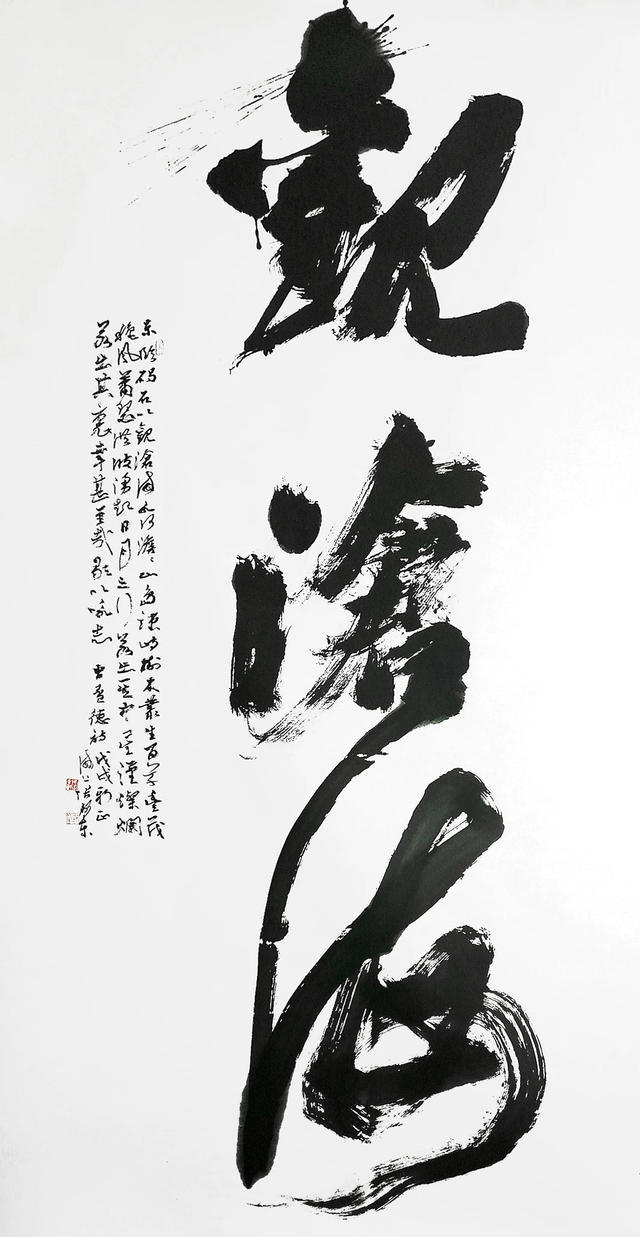 觀滄海
东臨碣石以觀滄海水何澹々山島竦峙樹木叢生百草豊茂
秋風萧瑟洪波湧起日月之行若出其中星漢燦爛
若出其裏幸甚至哉歌以咏志 曹孟德詩戊戌新正